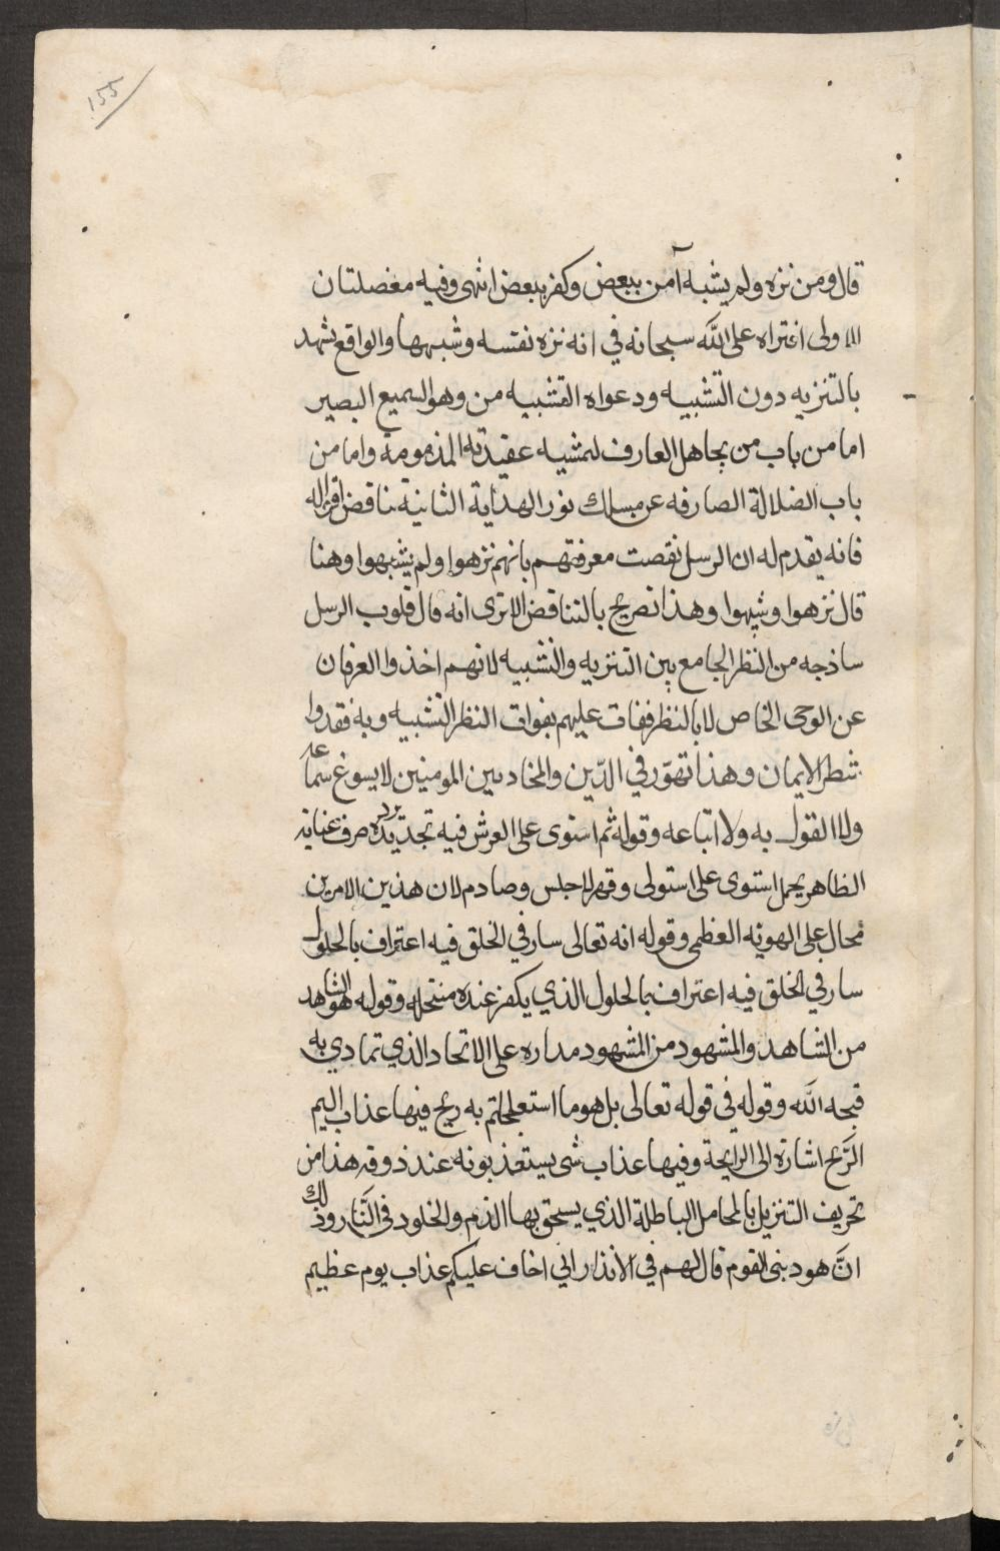 155
قال ومن نزه ولم يشبه آمن ببعض وكفر ببعض انتهى وفيه معضلتان
الاولى افتراه على الله سبحانه في انه نزه نفسه وشبهها والواقع يشهد
بالتنزيه دون التشبيه ودعواه التشبيه من وهو السميع البصير
اما من باب من تجاهل العارف لتمشيه عقيدته المذمومة واما من
باب الضلالة الصارفه عن مسلك نور الهداية الثانية تناقض اقواله
فانه يقدم له ان الرسل نقصت معرفتهم بانهم نزهوا ولم يشبهوا وهنا
قال نزهوا وشبهوا وهذا تصريح بالتناقض الا ترى انه قال قلوب الرسل
ساذجه من النظر الجامع بين التنزيه والتشبيه لانهم اخذوا العرفان
عن الوحى الخاص لا بالنظر ففات عليهم بفوات النظر التشبيه وبه فقدوا
شطر الايمان وهذا تهوّر في الدّين والمخاد بين المومنين لا يسوغ سماعه
ولا القول به ولا اتباعه وقوله ثم استوى على العرش فيه تجديد صرف عنايه
الظاهر يحمل استوى على استولى وقهر لا جلس وصادم لان هذين الامرين
محال على الهويه العظمى وقوله انه تعالى سار في الخلق فيه اعتراف بالحلول
سار في الخلق فيه اعتراف بالحلول الذي يكفر عنده منتحله وقوله هو الشاهد
من الشاهد والمشهود من المشهود مداره على الاتحاد الذي تمادي به
قبحه الله وقوله في قوله تعالى بل هو ما استعجلتم به ريح فيها عذاب اليم
الرّيح اشارة الى الرايحة وفيها عذاب شى يستعذبونه عند ذوقه هذا من
تحريف التنزيل بالمحامل الباطلة الذي يستحق بها الذم والخلود في النّار وذلك
انّ هود بنى القوم قال لهم في الانذار اني اخاف عليكم عذاب يوم عظيم